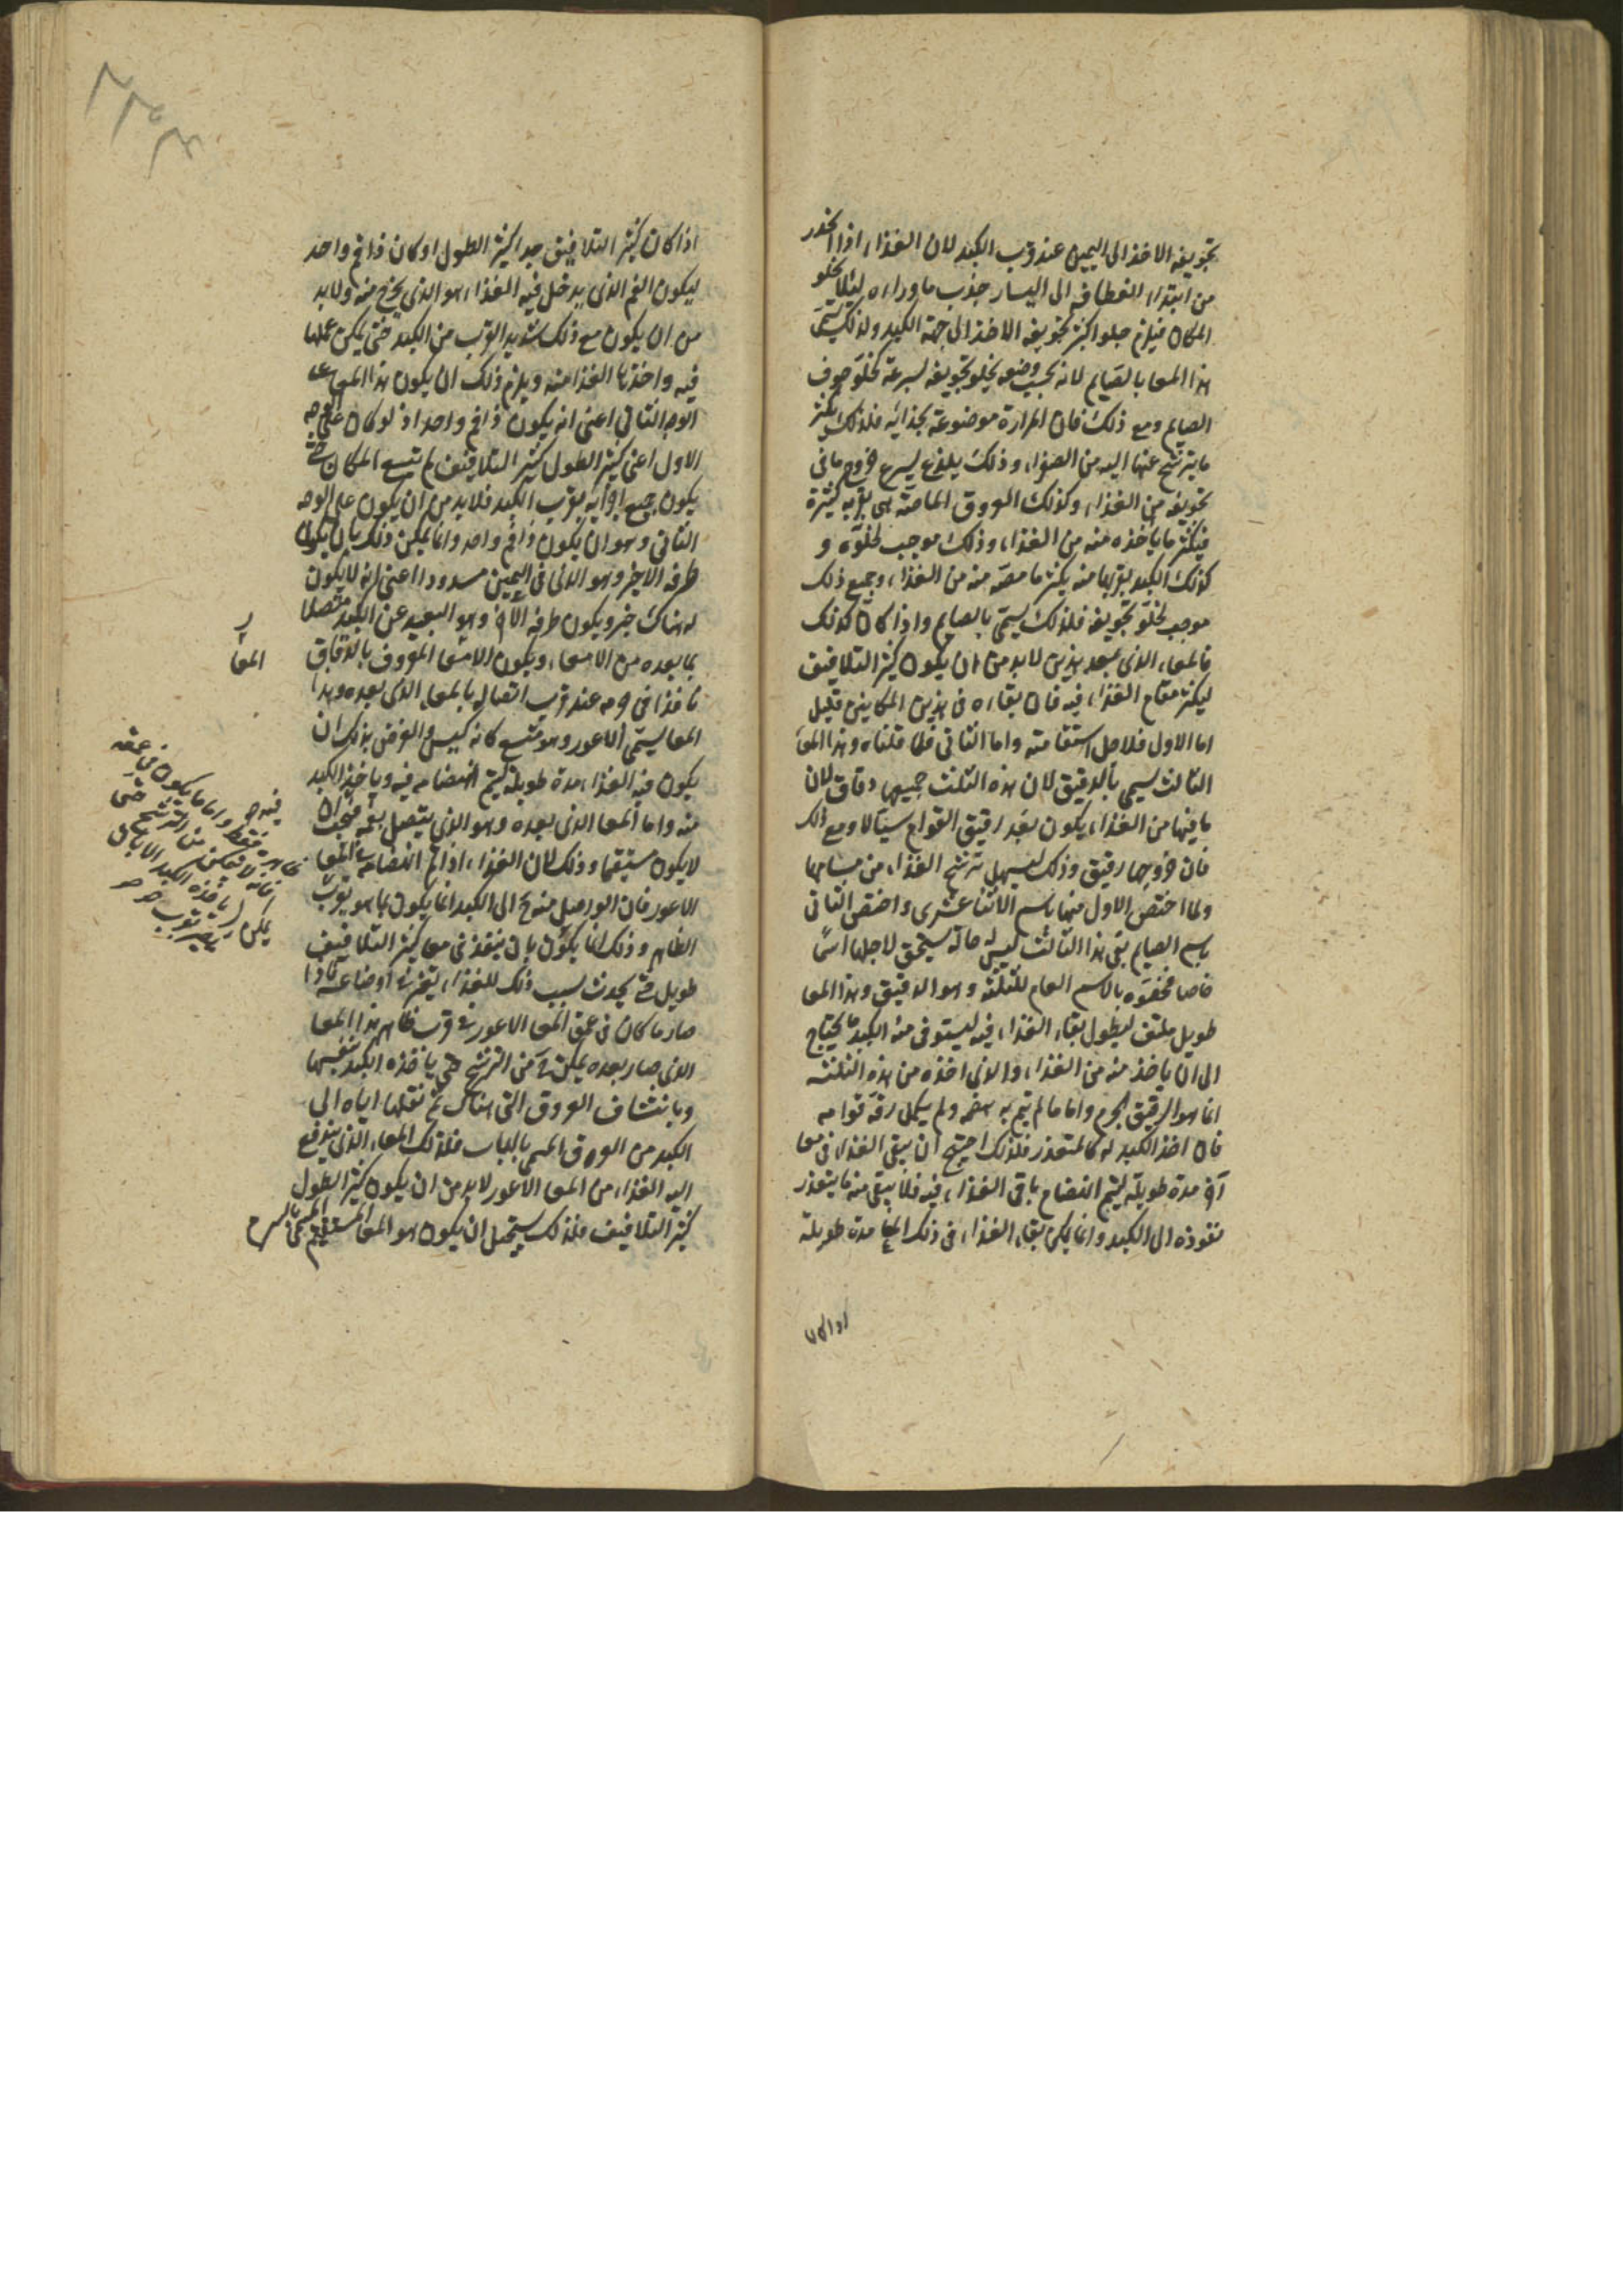 تجويفه الاخذ الى اليمين عند قرب الكبد لان الغذاء اذا انحدر
من ابتداء انعطافه الى اليسار جذب ما وراءه لئلا يخلو
المكان فيلزم خلو اكثر تجويفه الاخذ الى جهة الكبد ولذلك يسمى
هذا المعا بالصايم لانه بحسب وضعه يخلو تجويفه لسرعة كخلو جوف
الصايم ومع ذلك فان المرارة موضوعة بحذائه فلذلك يكثر
ما يترشح عنها اليه من الصفراء وذلك يلذع ليسرع خروج ما في
تجويفه من الغذاء وكذلك العروق الماصة هى بقربه كثيرة
فيكثر ما ياخذه منه من الغذاء وذلك موجب لخلوه و
كذلك الكبد بقربها منه يكثر ما مصه منه من الغذاء وجميع ذلك
موجب لخلو تجويفه فلذلك يسمى بالصايم واذا كان كذلك
فالمعاء الذى بعد هذين لابد من ان يكون كثير التلافيف
ليكثر مقام الغذاء فيه فان بقاءه فى هذين المكانين قليل
اما الاول فلاجل استقامته واما الثانى فلما قلناه وهذا المعا
الثالث يسمى بالدقيق لان هذه الثلث جميعها دقاق لان
ما فيها من الغذاء يكون بعد رقيق القوام سيالا ومع ذلك
فان خروجها رقيق وذلك ليسهل ترشح الغذاء من مسامها
ولما اختص الاول منها باسم الاثنا عشرى واختص الثانى
باسم الصايم بقى هذا الثالث ليس له حالة يستحق لاجلها اسمًا
خاصا فخصوه بالاسم العام للثلثة وهو الدقيق وهذا المعا
طويل ملتف ليطول بقاء الغذاء فيه ليستوفى منه الكبد ما يحتاج
الى ان ياخذ منه من الغذاء والذى اخذه من هذه الثلثة
انما هو الرقيق الجرم واما ما لم يتم به هضمه ولم يكمل رقة قوامه
فان اخذ الكبد له كالمتعذر فلذلك احتيج ان يبقى الغذاء فى معا
آخر مدة طويلة ليتم انهضام باقى الغذاء فيه فلا يبقى منه ما يتعذر
نفوذه الى الكبد وانما يمكن بقاء الغذاء فى ذلك المعا مدة طويلة
اذا كان
اذا كان كثير التلافيف جدا كثير الطول او كان ذا فم واحد
ليكون الفم الذى يدخل فيه الغذاء هو الذى يخرج منه ولابد
من ان يكون مع ذلك شديد القرب من الكبد حتى يمكن عملها
فيه واخذها الغذا منه ويلزم ذلك ان يكون هذا المعا على
الوجه الثانى اعنى انه يكون ذا فم واحد اذ لو كان على الوجه
الاول اعنى كثير الطول كثير التلافيف لم تتسع المكان حتى
يكون جميع اجزائه بقرب الكبد فلابد من ان يكون على الوجه
الثانى وهو ان يكون ذا فم واحد وانما يمكن ذلك بان يكون
طرفه الاخير وهو الذى فى اليمين مسدودا اعنى انه لا يكون
له هناك خير ويكون طرفه الآخر وهو البعيد عن الكبد متصلا
بما بعده من الامعاء ويكون الامعا المعروف بالدقاق
نافذا فى فمه عند قرب اتصاله بالمعا الذى بعده وهذا
المعا يسمى الاعور وهو متسع كانه كيس والغرض بذلك ان
يكون فيه الغذاء مدة طويلة ليتم انهضامه فيه وياخذ الكبد
منه واما المعا الذى بعده وهو الذى يتصل بفمه فيجب ان
لا يكون مستقيما وذلك لان الغذاء اذا تم انهضامه فى المعا
الاعور فان الواصل منه الى الكبد انما يكون بما هو بقرب
الظاهر وذلك انما يكون بان ينفذ فى معا كثير التلافيف
طويل حتى يحدث بسبب ذلك للغذاء تغير فى اوضاعه فاذا
صار ما كان فى عمق المعا الاعور فى قرب ظاهر هذا المعا
الذى صار بعده يمكن من الترشح حتى ياخذه الكبد بنفسها
وبانتشاف العروق التى هناك ثم نقلها اياه الى
الكبد من العروق المسمى بالباب فلذلك المعاء الذى يندفع
اليه الغذاء من المعا الاعور لابد من ان يكون كثير الطول
كثير التلافيف فلذلك يستحيل ان يكون هو المعا المستقيم المسمى بالسرم
المعا
ظاهره فقط واما ما يكون فى عمقه
فانه لا يتمكن من الترشح حتى
ياخذه الكبد الا بان
يمكن بقرب